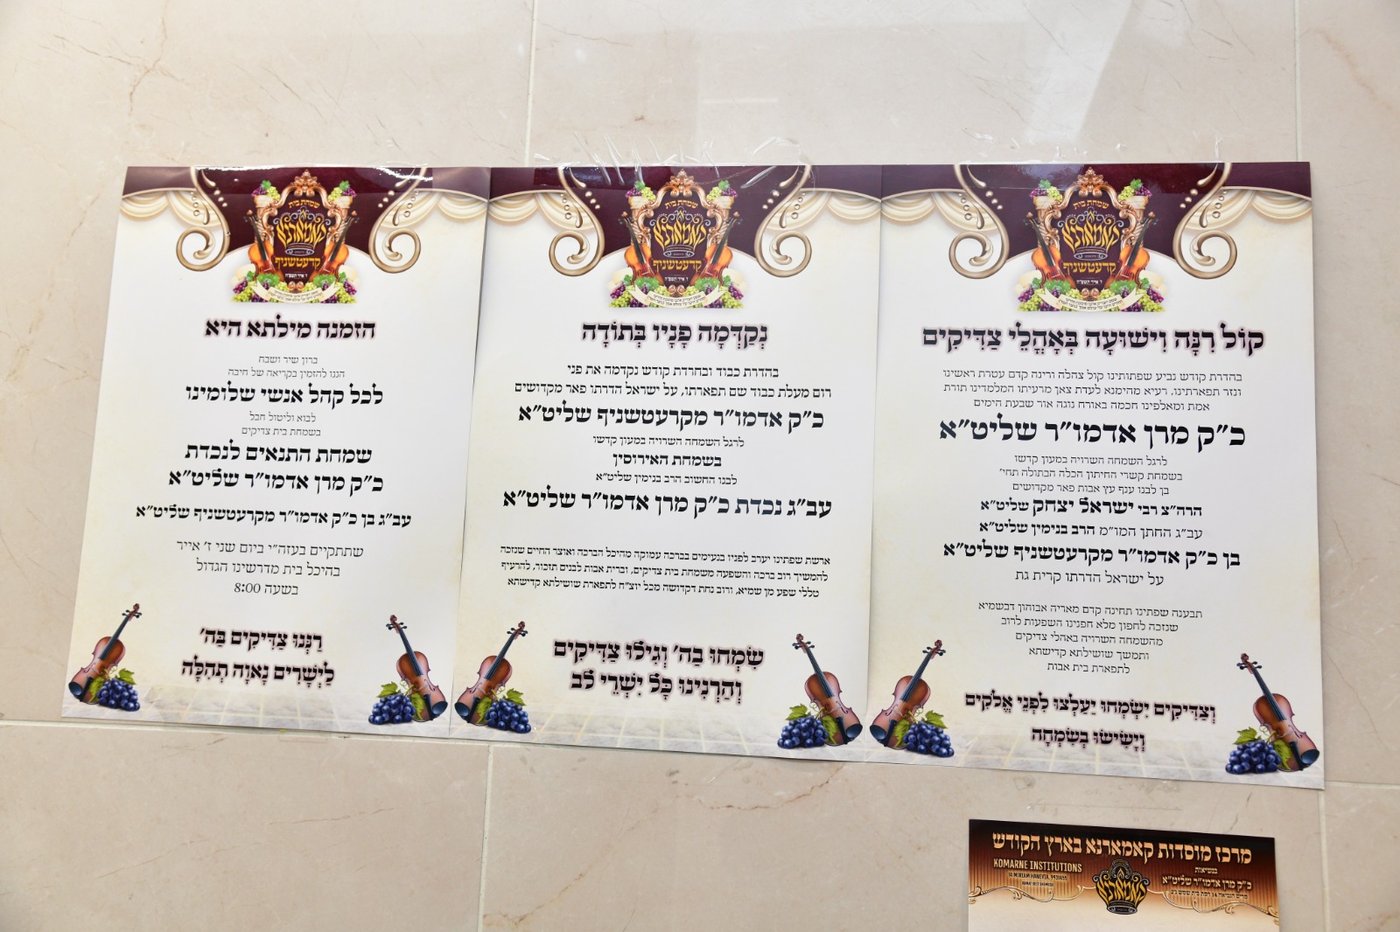 שמחת בית
קאמארנא
קרעטשניף
ז' אייר תשפ"ה
קוֹל רִנָּה וִישׁוּעָה בְּאָהֳלֵי צַדִּיקִים
בהדרת קודש נביע שפתותינו קול צהלה ורינה קדם עטרת ראשינו
ונזר תפארתינו, רעיא מהימנא לעדת צאן מרעיתו המלמדינו תורת
אמת ומאלפינו חכמה באורח נוגה אור שבעת הימים
כ"ק מרן אדמו"ר שליט"א
לרגל השמחה השרויה במעון קדשו
בשמחת קשרי החיתון הכלה הבתולה תחי'
בן לבנו ענף עץ אבות פאר מקדושים
הרה"צ רבי ישראל יצחק שליט"א
עב"ג החתן המו"מ הרב בנימין שליט"א
בן כ"ק אדמו"ר מקרעטשניף שליט"א
על ישראל הדרתו קרית גת
תבענה שפתינו תחינה קדם מאריה אבוהון דבשמיא
שנזכה לחפון מלא חפנינו השפעות לרוב
מהשמחה השרויה באהלי צדיקים
ותמשך שושילתא קדישתא
לתפארת בית אבות
וְצַדִּיקִים יִשְׂמְחוּ יַעַלְצוּ לִפְנֵי אֱלֹקִים
וְיָשִׂישׂוּ בְשִׂמְחָה
שמחת בית
קאמארנא
קרעטשניף
ז' אייר תשפ"ה
נְקַדְּמָה פָנָיו בְּתוֹדָה
בהדרת כבוד ובחרדת קודש נקדמה את פני
רום מעלת כבוד שם תפארתו, על ישראל הדרתו פאר מקדושים
כ"ק אדמו"ר מקרעטשניף שליט"א
לרגל השמחה השרויה במעון קדשו
בשמחת האירוסין
לבנו החשוב הרב בנימין שליט"א
עב"ג נכדת כ"ק מרן אדמו"ר שליט"א
ארשת שפתינו יערב לפניו בנעימים בברכה עמוקה מהיכל הברכה ואוצר החיים שנזכה
להמשיך רוב ברכה והשפעה משמחת בית צדיקים, וברית אבות לבנים תזכור, להרעיף
טללי שפע מן שמיא, ורוב נחת דקדושה מכל יוצ"ח לתפארת שושילתא קדישתא
שִׂמְחוּ בַה' וְגִילוּ צַדִּיקִים
וְהַרְנִינוּ כָּל יִשְׁרֵי לֵב
שמחת בית
קאמארנא
קרעטשניף
ז' אייר תשפ"ה
הזמנה מילתא היא
ברון שיר ושבח
הננו להזמין בקריאה של חיבה
לכל קהל אנשי שלומינו
לבוא וליטול חבל
בשמחת בית צדיקים
שמחת התנאים לנכדת
כ"ק מרן אדמו"ר שליט"א
עב"ג בן כ"ק אדמו"ר מקרעטשניף שליט"א
שתתקיים בעזה"י ביום שני ז' אייר
בהיכל בית מדרשינו הגדול
בשעה 8:00
רַנְּנוּ צַדִּיקִים בַּה'
לַיְשָׁרִים נָאוָה תְהִלָּה
מרכז מוסדות קאמארנא בארץ הקודש
KOMARNE INSTITUTIONS
בנשיאות
כ"ק מרן אדמו"ר שליט"א
קאמארנא